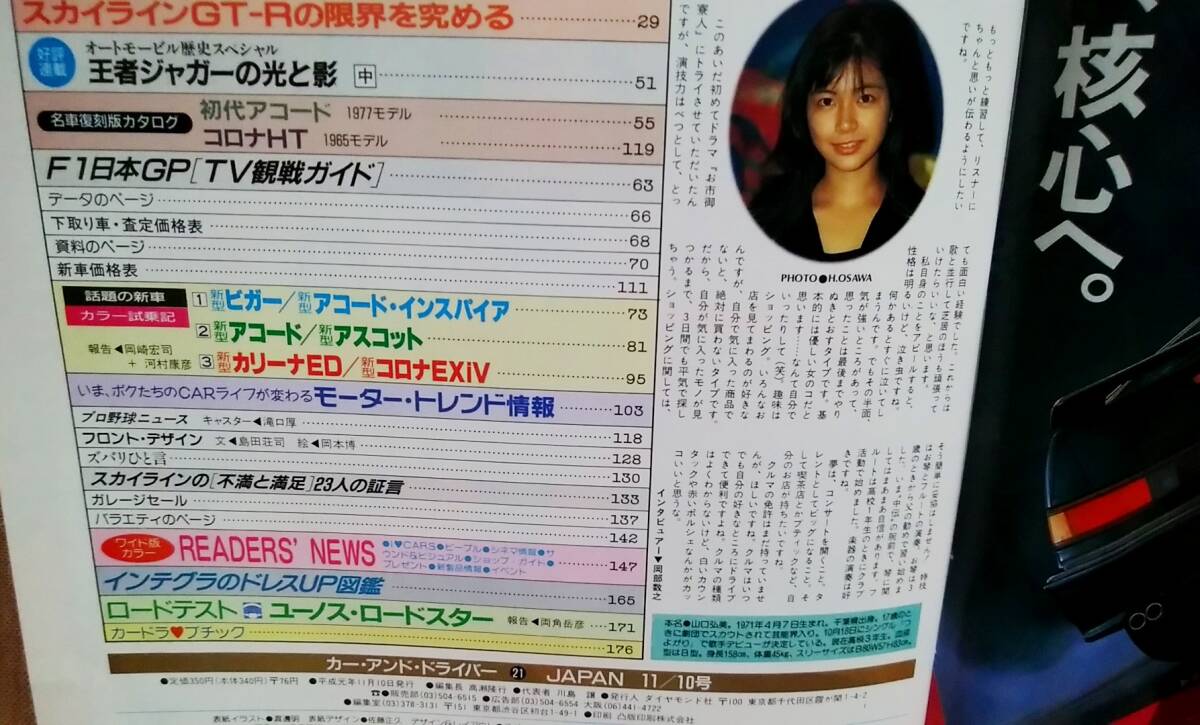 スカイラインGT-Rの限界を究める 29
好評連載
オートモービル歴史スペシャル
王者ジャガーの光と影 中 51
名車復刻版カタログ
初代アコード 1977モデル 55
コロナHT 1965モデル 119
F1日本GP[TV観戦ガイド] 63
データのページ 66
下取り車・査定価格表 68
資料のページ 70
新車価格表 111
話題の新車
カラー試乗記
報告◀岡崎宏司
+河村康彦
1 新型ビガー/新型アコード・インスパイア 73
2 新型アコード/新型アスコット 81
3 新型カリーナED/新型コロナEXiV 95
いま、ボクたちのCARライフが変わる モーター・トレンド情報 103
プロ野球ニュース キャスター◀滝口厚 118
フロント・デザイン 文◀島田荘司 絵◀岡本博 128
ズバリひと言 130
スカイラインの[不満と満足]23人の証言 133
ガレージセール 137
バラエティのページ 142
ワイド版カラー
READERS' NEWS 147
●I♥CARS●ピープル●シネマ情報●サ
ウンド&ビジュアル●ショップ・ガイド●
プレゼント●新製品情報●イベント
インテグラのドレスUP図鑑 165
ロードテスト ユーノス・ロードスター 報告◀両角岳彦 171
カードラ♥プチック 176
カー・アンド・ドライバー 21 JAPAN 11/10号
●定価350円(本体340円)〒76円 ●平成元年11月10日発行 ●編集長 高瀬隆行 ●代表者 川島 譲 ●発行人 ダイヤモンド社 〒100 東京都千代田区霞が関1-4-2
☎●販売部(03)504-6515 ●広告部(03)504-6554 大阪(06)441-4722
●編集室(03)378-3131 〒151 東京都渋谷区初台1-49-1 ●印刷 凸版印刷株式会社
表紙イラスト●真道明 表紙デザイン●佐藤正久
もっともっと練習して、リスナーに
ちゃんと思いが伝わるようにしたい
ですね。
このあいだ初めてドラマ『お市御
寮人』にトライさせていただいたん
ですが、演技力はべつとして、とっ
PHOTO●H.OSAWA
ても面白い経験でした。これからは
歌と並行して芝居のほうも頑張って
いけたらいいな、と思います。
私自身のことをアピールすると、
性格は明るいけど、泣き虫ですね。
何かあるとすぐに泣いてし
まうんです。でもその半面、
気が強いところがあって、
思ったことは最後までやり
ぬきとおすタイプです。基
本的には優しい女のコだと
思います……なんて自分で
いったりして(笑)。趣味は
ショッピング。いろんなお
店を見てまわるのが好きな
んですが、自分で気に入った商品で
ないと、絶対に買わないタイプです。
だから、自分が気に入ったモノが見
つかるまで、3日間でも平気で探し
ちゃう。ショッピングに関しては、
そう簡単に妥協はしません!特技
はお琴とフルートの演奏。お琴は3
歳のときから父の勧めで習い始めま
した。いま"中伝"の腕前で、琴に関
してはまあまあ自信があります。フ
ルートは高校1年生のときにクラブ
活動で始めました。楽器の演奏は好
きですね。
夢は、コンサートを開くこと、タ
レントとしてビッグになること、そ
して喫茶店とかブティックなど、自
分のお店が持ちたいですね。
クルマの免許はまだ持っていませ
んが、ほしいです。クルマはいつ
でも自分の好きなところにドライブ
できて便利ですよ。クルマの種類
はよくわからないけど、白いカウン
タックや赤いポルシェなんかがカッ
コいいと思うな。
インタビュアー▼岡部数之
本名●山口弘美。1971年4月7日生まれ。千葉県出身。17歳のと
きに劇団でスカウトされて芸能界入り。10月18日にシングル「つ
よがり」で歌手デビューが決定している。現在高校3年生。血液
型はB型。身長158cm、体重45kg、スリーサイズはB80W57H83cm。
核心へ。